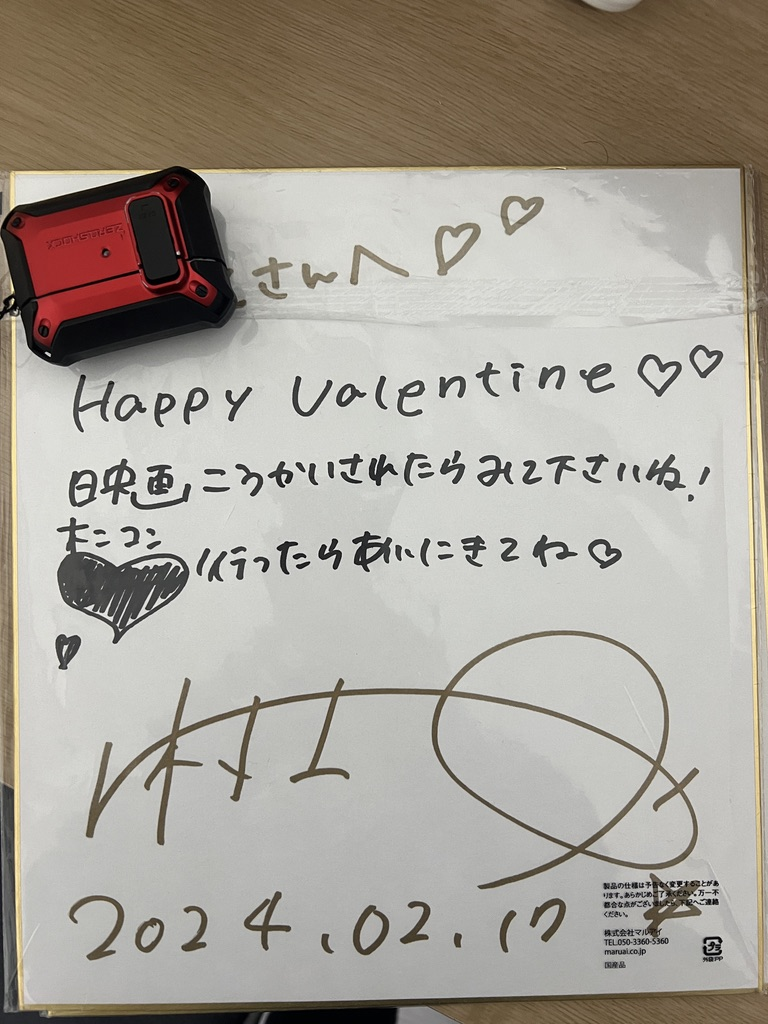 ZEROSHOCK
さんへ♡♡
Happy Valentine♡♡
映画こうかいされたらみて下さいね!
行ったらあいにきてね♡
2024.02.17
製品の仕様は予告なく変更することがあ
ります。あらかじめご了承ください。万一不
都合な点がございましたら、下記へご連絡
ください。
株式会社マルアイ
TEL.050-3360-5360
maruai.co.jp
国産品
プラ
外袋:PP